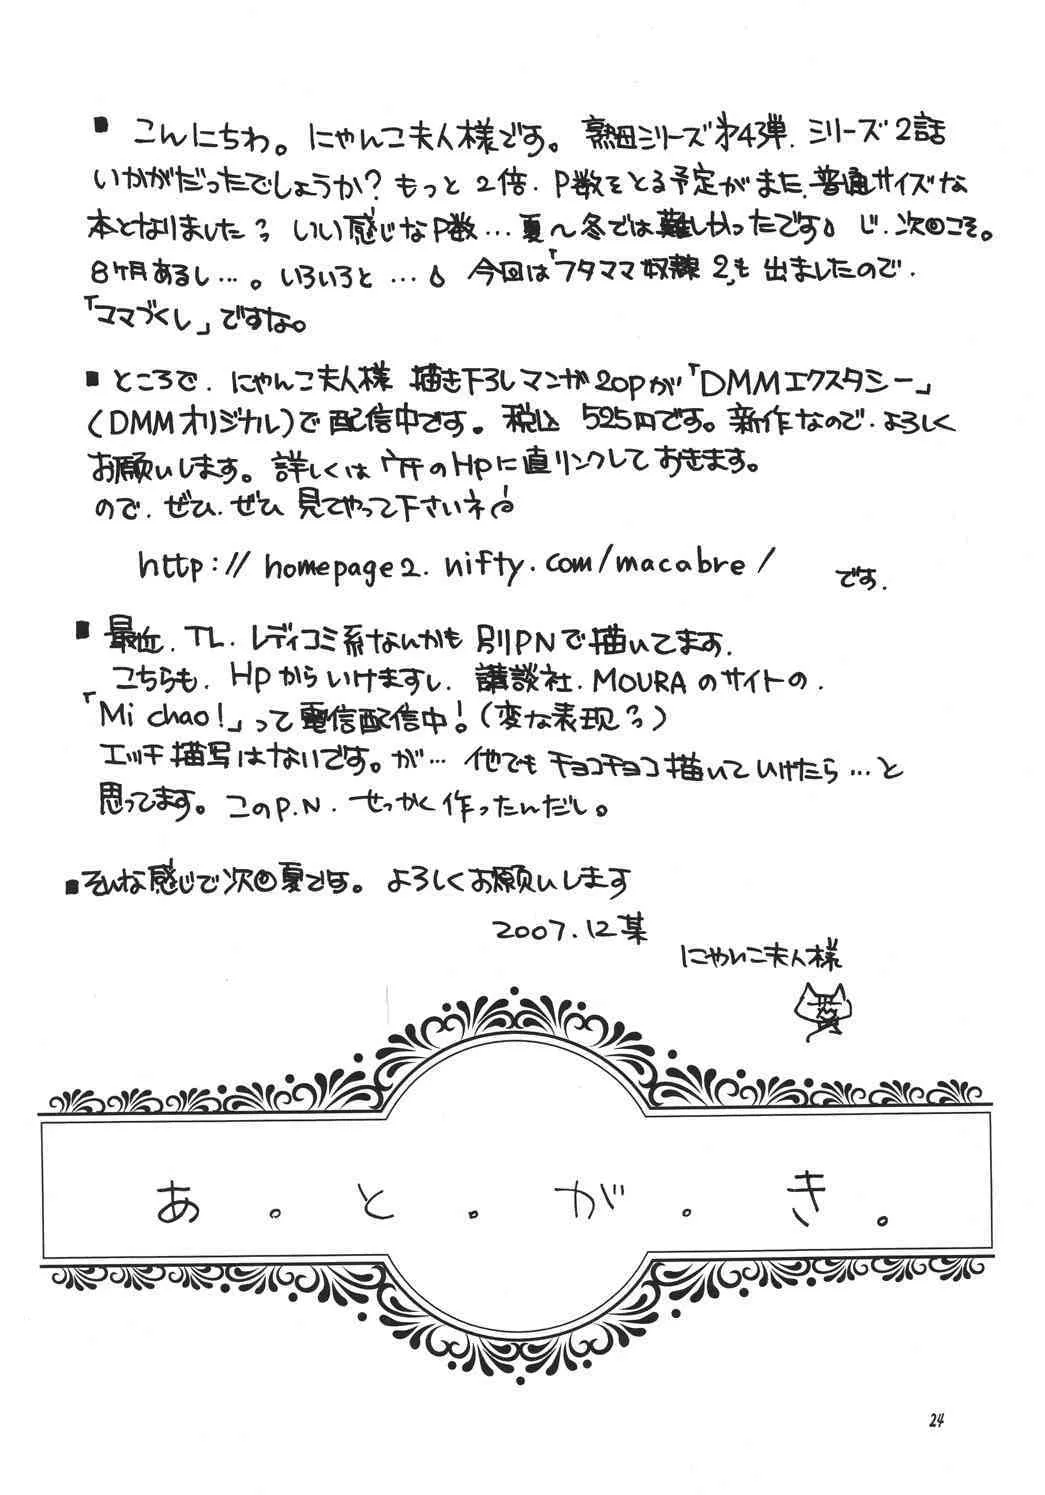 ■ こんにちわ。にゃんこ夫人様です。熟母シリーズ第4弾.シリーズ2話
いかがだったでしょうか?もっと2倍.P数をとる予定がまた.普通サイズな
本となりました〜いい感じなP数…夏〜冬では難しかったです♪じ.次回こそ。
8ヶ月あるし…。いろいろと…♪今回は「フタママ奴隷2」も出ましたので.
「ママづくし」ですな。
■ ところで.にゃんこ夫人様 描き下ろしマンガ20Pが「DMMエクスタシー」
(DMMオリジナル)で配信中です。税込 525円です。新作なので.よろしく
お願いします。詳しくはウチのHPに直リンクしておきます。
ので.ぜひ.ぜひ見てやって下さいネ♪
http://homepage2.nifty.com/macabre/ です.
■ 最近.TL.レディコミ系なんかも別PNで描いてます.
こちらも.HPからいけますし.講談社.MOURAのサイトの.
「Mi chao!」って電信配信中!(変な表現〜)
エッチ描写はないです。が…他でもチョコチョコ描いていけたら…と
思ってます。このP.N.せっかく作ったんだし。
■ そんな感じで次回夏です。よろしくお願いします
2007.12某
にゃんこ夫人様
あ。と。が。き。
24